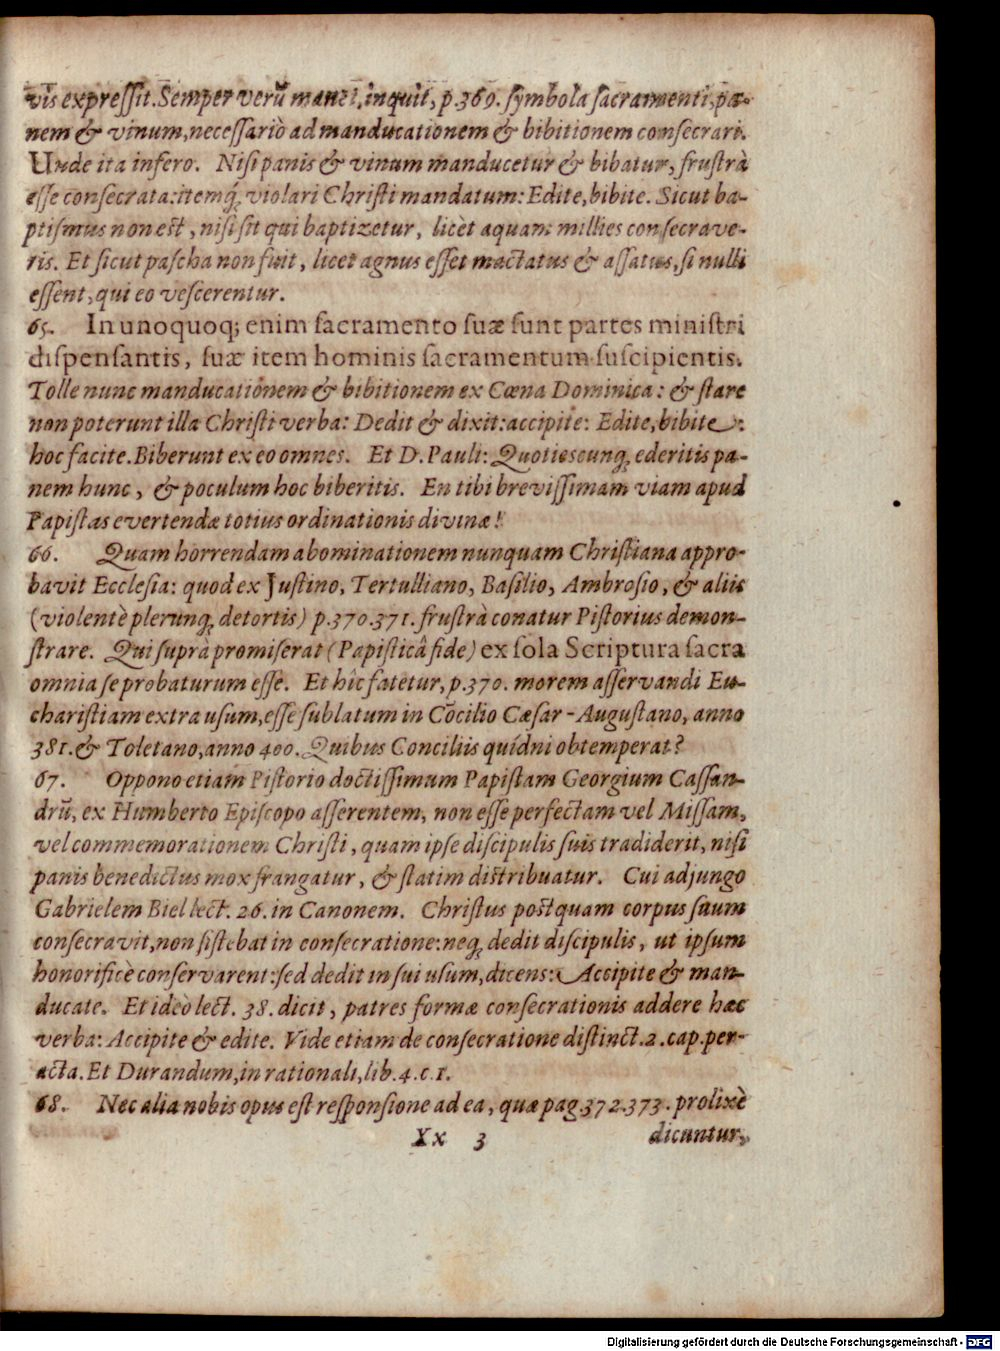 vis expressit. Semper verū manet, inquit, p.369. symbola sacramenti, pa-
nem & vinum, necessariò ad manducationem & bibitionem consecrari.
Unde ita infero. Nisi panis & vinum manducetur & bibatur, frustrà
esse consecrata: itemq́; violari Christi mandatum: Edite, bibite. Sicut ba-
ptismus non est, nisi sit qui baptizetur, licèt aquam millies consecrave-
ris. Et sicut pascha non fuit, licet agnus esset mactatus & assatus, si nulli
essent, qui eo vescerentur.
65. In unoquoq; enim sacramento suæ sunt partes ministri
dispensantis, suæ item hominis sacramentum suscipientis.
Tolle nunc manducationem & bibitionem ex Cœna Dominica: & stare
non poterunt illa Christi verba: Dedit & dixit: accipite: Edite, bibite:
hoc facite. Biberunt ex eo omnes. Et D. Pauli: Quotiescunq; ederitis pa-
nem hunc, & poculum hoc biberitis. En tibi brevissimam viam apud
Papistas evertendæ totius ordinationis divinæ!
66. Quam horrendam abominationem nunquam Christiana appro-
bavit Ecclesia: quod ex Justino, Tertulliano, Basilio, Ambrosio, & aliis
(violentè plerunq; detortis) p.370.371. frustrà conatur Pistorius demon-
strare. Qui suprà promiserat (Papisticâ fide) ex sola Scriptura sacra
omnia se probaturum esse. Et hîc fatetur, p.370. morem asservandi Eu-
charistiam extra usum, esse sublatum in Cōcilio Cæsar-Augustano, anno
381. & Toletano, anno 400. Quibus Conciliis quídni obtemperat?
67. Oppono etiam Pistorio doctissimum Papistam Georgium Cassan-
drū, ex Humberto Episcopo asserentem, non esse perfectam vel Missam,
vel commemorationem Christi, quam ipse discipulis suis tradiderit, nisi
panis benedictus mox frangatur, & statim distribuatur. Cui adjungo
Gabrielem Biel lect. 26. in Canonem. Christus postquam corpus suum
consecravit, non sistebat in consecratione: neq; dedit discipulis, ut ipsum
honorificè conservarent: sed dedit in sui usum, dicens: Accipite & man-
ducate. Et ideò lect. 38. dicit, patres formæ consecrationis addere hæc
verba: Accipite & edite. Vide etiam de consecratione distinct.2.cap.per-
acta. Et Durandum, in rationali, lib.4.c.1.
68. Nec alia nobis opus est responsione ad ea, quæ pag.372.373. prolixè
Xx 3 dicuntur,
Digitalisierung gefördert durch die Deutsche Forschungsgemeinschaft - DFG